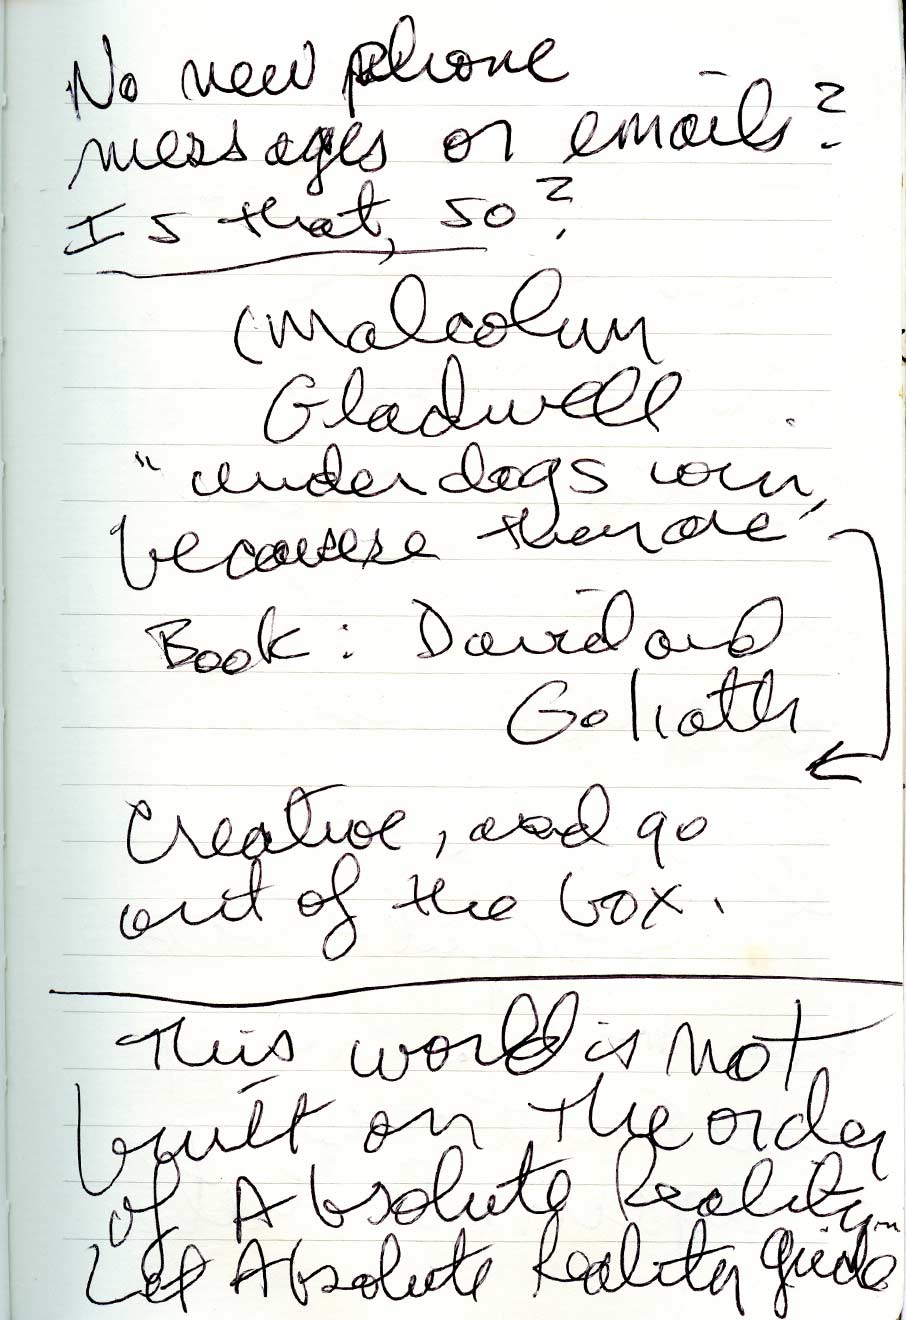 No new phone
messages or emails?
Is that, so?
(Malcolum
Gladwell
"underdogs win,
because they are
Book: David and
Goliath
Creative, and go
out of the box.
This world is not
built on the order
of Absolute Reality
Let Absolute Reality guide